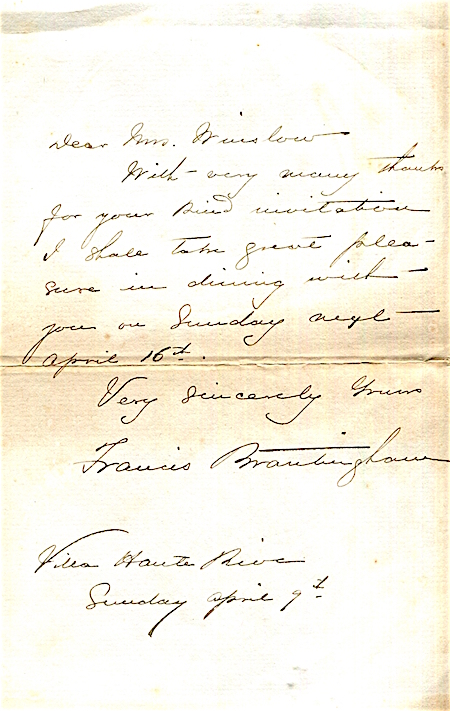 Dear Mrs. Winslow
With very many thanks
for your kind invitation
I shall take great plea-
sure in dining with
you on Sunday next
April 16th.
Very sincerely Yours
Francis Brantingham
Villa Haute Rive
Sunday April 9th